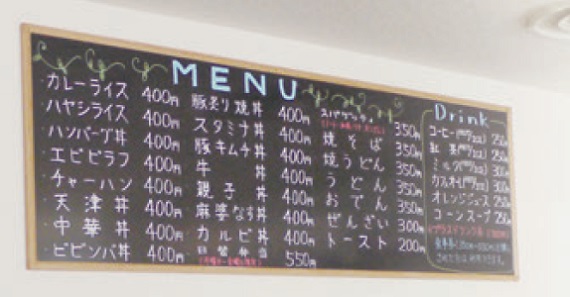 MENU
カレーライス 400円
ハヤシライス 400円
ハンバーグ丼 400円
エビピラフ 400円
チャーハン 400円
天津丼 400円
中華丼 400円
ビビンバ丼 400円
豚炙り焼丼 400円
スタミナ丼 400円
豚キムチ丼 400円
牛丼 400円
親子丼 400円
麻婆なす丼 400円
カルビ丼 400円
日替弁当 550円
スパゲッティ 350円
焼そば 350円
焼うどん 350円
うどん 350円
おでん 350円
ぜんざい 300円
トースト 200円
Drink
コーヒー 250円
紅茶 250円
ミルク 300円
カフェオーレ 300円
オレンジジュース 250円
コーンスープ 250円